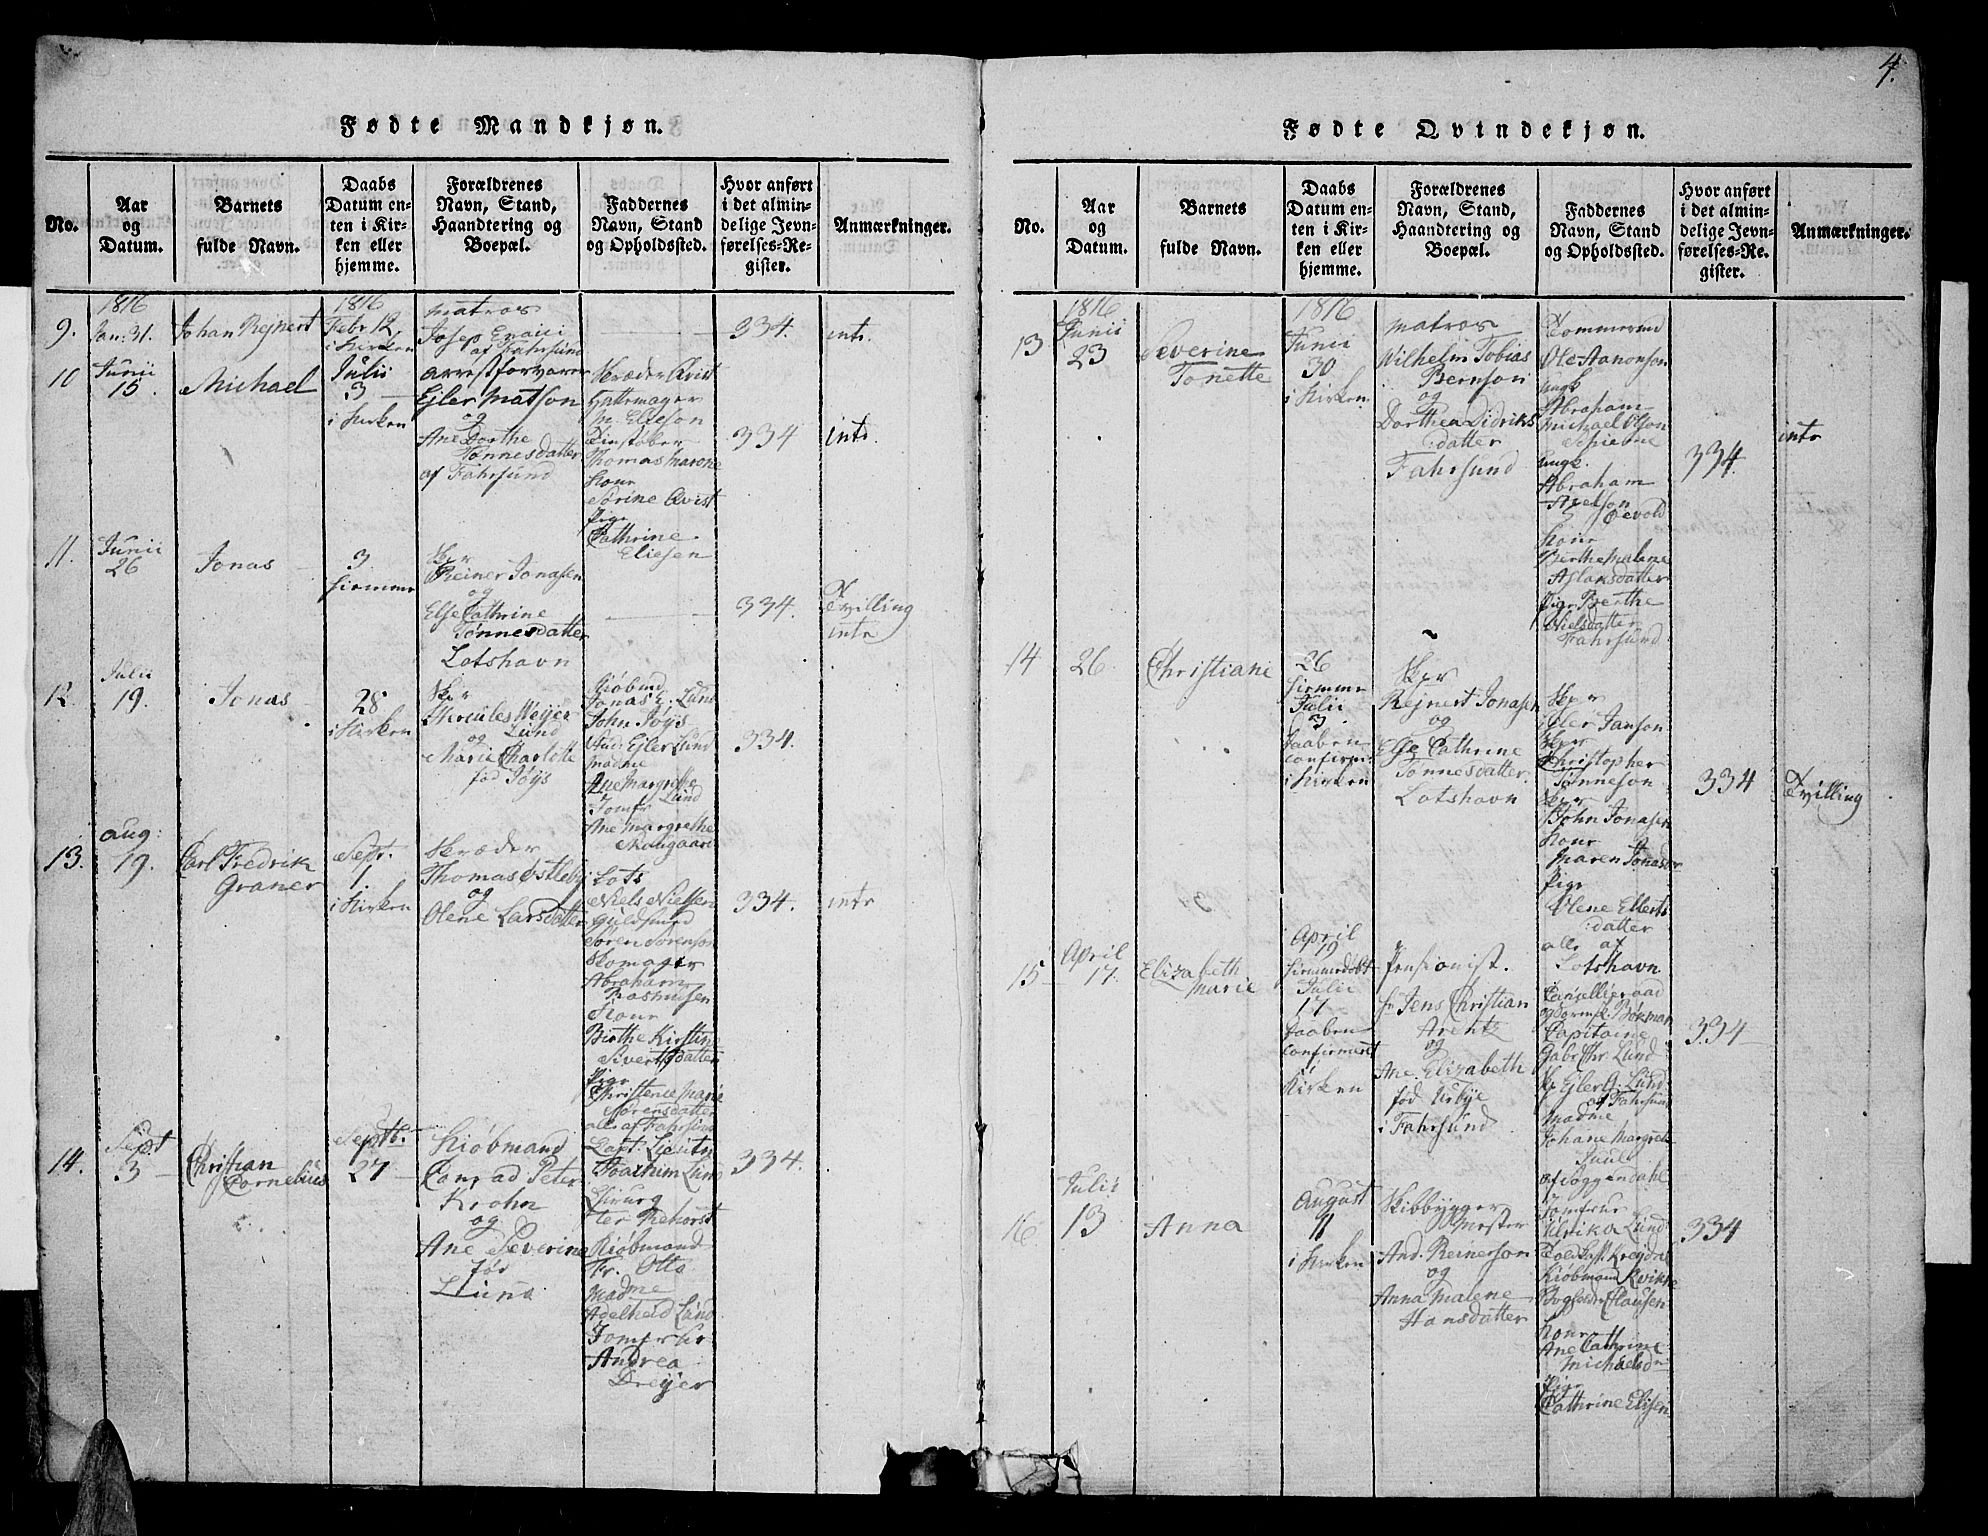 4.
Fødte Mandkjøn.
No.
Aar
og
Datum.
Barnets
fulde Navn.
Daabs
Datum en-
ten i Kir-
ken eller
hjemme.
Forældrenes
Navn, Stand,
Haandtering og
Boepæl.
Faddernes
Navn, Stand
og Opholdssted.
Hvor anført
i det almin-
delige Jevn-
førelses-Re-
gister.
Anmærkninger.
9.
1816
Jan: 31.
Johan Rejnert
1816
Febr 12
i Kirken
matros
Josep
af Fahrsund
334.
intr.
10
Junii
15.
Michael
Julii
3
i Kirken
arrestforvarer
Ejler Matson
og
Ane Dorthe
Tønnesdatter
af Fahrsund
Skræder Qvist
Hattemager
M. Elieson
Tinstøber
Thomas Marone
Konr
Sørine Qvist
Pige
Cathrine
Eliesen
334
intr.
11.
Junii
26
Jonas
3
hiemme
Skpr
Reiner Jonasen
og
Else Cathrine
Tønnesdatter
Lotshavn
334.
Tvilling
intr
12
Julii
19.
Jonas
28
i Kirken
Skpr
Herculės Weyer
Lund
og
Marie Charlotte
fød Jøÿs
Kiøbmd
Jonas E. Lund
John Jøÿs
Stud: Ejler Lund
Madme
Ane Margrethe
Lund
Jomfr
Ane Margrethe
334.
13.
Aug:
19.
Carl Fredrik
Graner
Sept.
1.
i Kirken
Skræder
Thomas Østleby
og
Olene Larsdatter
Lots
Niels Nielsen
Guldsmed
Søren Sørenson
Skomager
Abraham
Rasmusen
Konr
Birthe Kirstine
Sivertsdatter
Pige
Christence Marie
Sørensdatter
alle af Fahrsund
334.
intr
14.
Sept
3
Christian
Cornelius
Septb.
27
Kiøbmand
Conrad Peter
Krohn
og
Ane Severine
før
Lund
Capt: Lieutn
Joachum Lund
Chirurg
ter Rehorst
Kiøbmand
Fr. Otto
Madme
Adelheid Lund
Jomfruer
Andrea
Dreÿer
334.
Fødte Qvindekjøn.
No.
Aar
og
Datum.
Barnets
fulde Navn.
Daabs
Datum en-
ten i Kir-
ken eller
hjemme.
Forældrenes
Navn, Stand,
Haandtering og
Boepæl.
Faddernes
Navn, Stand
og Opholdssted.
Hvor anført
i det almin-
delige Jevn-
førelses-Re-
gister.
Anmærkninger.
13
1816
Junii
23
Severine
Tonette
1816
Junii
30
i Kirken
matros
Wilhelm Tobias
Bernson
og
Dorthea Didriks
:datter
Fahrsund
Tømmermd
Ole Aanonson
Ungk
Abraham
Michael Olson
Ungk.
Abraham
Axelson
Konr
Berthe Malene
Aslaksdatter
Pige Berthe
Nielsdatter
Fahrsund
334.
intr
14
26
Christiane
26
hiemme
Julii
3
Daaben
confirm:
i Kirken
Skpr
Rejnert Jonasen
og
Else Cathrine
Tønnesdatter.
Lotshavn
Skpr
Ejler Janson
Skpr
Christopher
Tønneson
Skpr
John Jonasen
Konr
Maren Jonasdr
Pige
Olene Ellerts
:datter
alle af
Lotshavn
334
Tvilling
15
April
17.
Elizabeth
Marie
April
19
hiemmedøbt
Julii
17
Daaben
confirmeret
Kirken
Pensionist.
hr Jens Christian
Arentz
og
Ane Elizabeth
fød Urbye
i Fahrsund
Cancellieraad
og Sorenskr. Bökman
Capitaine
Gabr: Chr. Lund
hr Ejler G. Lund
af Fahrsund
Madme
Johane Margrete
Juul
af Loggendahl
334
16
Julii
13
Anna
August
11
i Kirken
Skibbygger
Mester
And. Reinerson
og
Anna Malene
Hansdatter
Jomfrue
Ulrika Lund
Kiøbmand Kvikne
Bogholder Clausen
Konr
Ane Cathrine
Michelsdr
Pige
Cathrine Elisen
334